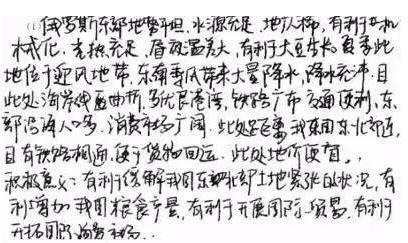 (1)俄罗斯东部地势平坦,水源充足,地广人稀,有利于机
械化,光热充足,昼夜温差大,有利于大豆生长,夏季此
地位于迎风地带,东南季风带来大量降水,降水充沛.且
此处海岸线曲折,多优良港湾,铁路广布,交通便利,东
部沿海人口多,消费市场广阔.此处距离我国东北部近,
且有铁路相通,便于货物回运.此处地价便宜.
积极意义:有利于缓解我国东北部土地紧张的状况,有
利增加我国粮食产量,有利于开展国际贸易,有利于
开拓国际市场.